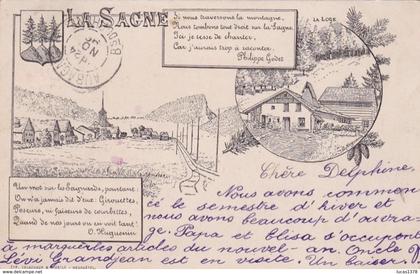 LA SAGNE
Si nous traversons la montagne,
Nous tombons tout droit sur la Sagne.
Ici je cesse de chanter,
Car j'aurais trop à raconter.
Philippe Godet
LA LOGE
AUBAGNE
Un mot sur les Sagnards, pourtant:
On n'a jamais dit d'eux: Girouettes,
Poseurs, ni faiseurs de courbettes,
Quand de nos jours on en voit tant!
O. Huguenin
Chère Delphine,
Nous avons commen
cé le semestre d'hiver et
nous avons beaucoup d'ouvra
ge. Papa et Elisa s'occupent
à marguerites articles du nouvel-an. Oncle
Lévi Grandjean est en visite. Un baiser.
lucas1378